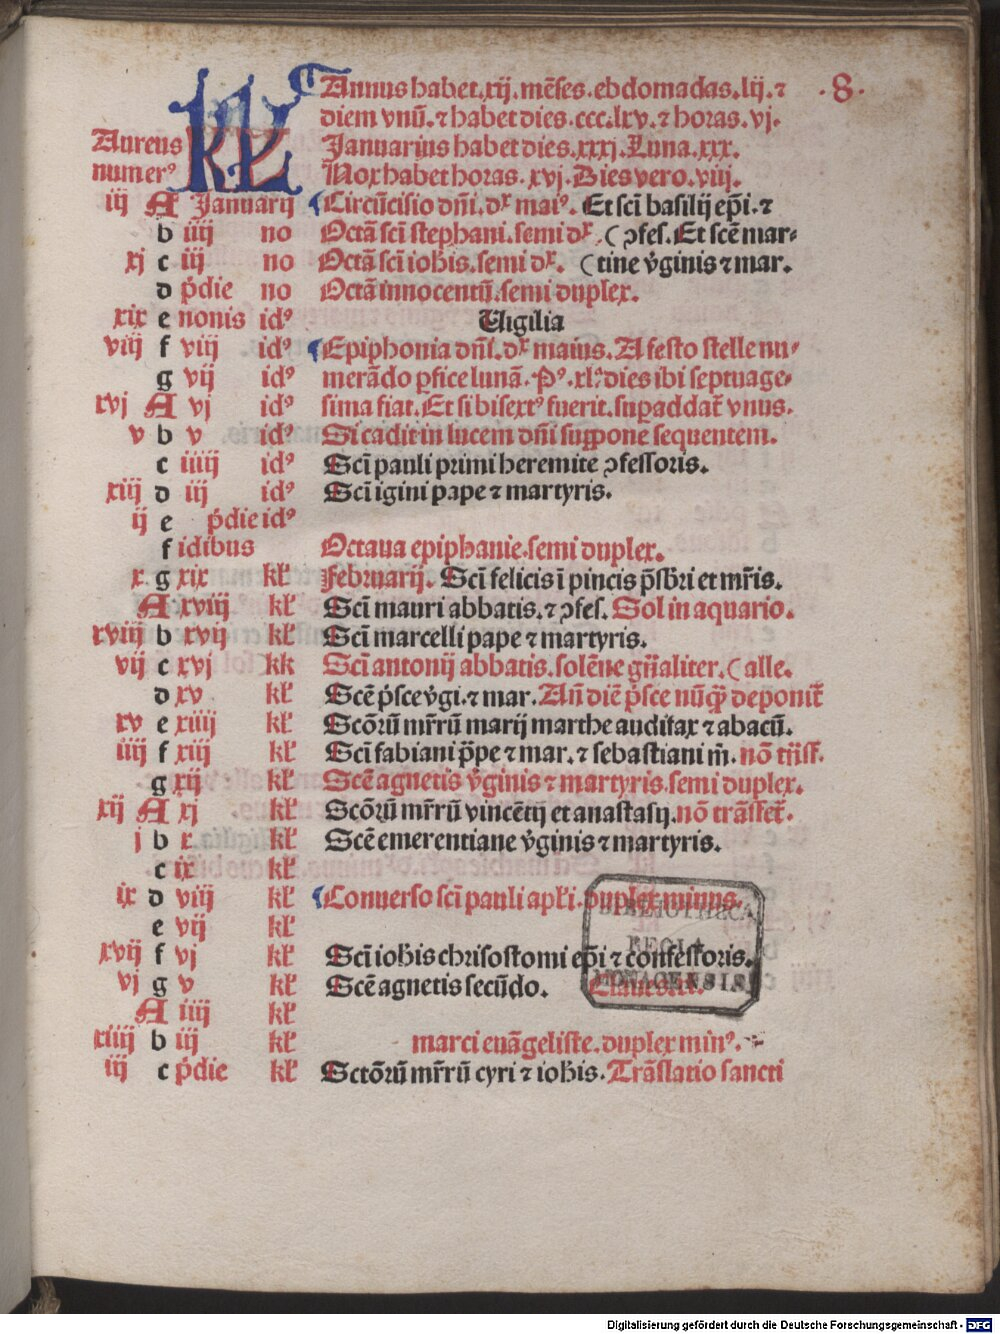 Annus habet .xij. mēses. ebdomadas. lij. ⁊ · 8 ·
diem vnū. ⁊ habet dies . ccc. lxv. ⁊ horas . vj.
Aureus KL Januarius habet dies . xxxj. Luna. xxx.
numerꝰ Nox habet horas . xvj. Dies vero. viij.
iij A Januarij Circūcisio dn̄i. dx maiꝰ. Et scī basilij ep̄i. ⁊
b iiij no Octā scī stephani. semi dx. (ↄfes. Et scē mar-
xj c iij no Octā scī ioh̄is. semi dx. (tine v̄ginis ⁊ mar.
d p̄die no Octā innocentū. semi duplex.
xix e nonis idꝰ Uigilia
viij f viij idꝰ Epiphonia dn̄i. dx maius. A festo stelle nu-
g vij idꝰ merādo ꝑfice lunā. Pꝰ. xl. dies ibi septuage-
xvj A vj idꝰ sima fiat. Et si bisextꝰ fuerit. supaddat̄ vnus.
v b v idꝰ Si cadit in lucem dn̄i suppone sequentem.
c iiij idꝰ Scī pauli primi heremite ↄfessoris.
xiij d iij idꝰ Scī igini pape ⁊ martyris.
ij e p̄die idꝰ
f idibus Octaua epiphanie. semi duplex.
x g xix kł Februarij. Scī felicis ī pincis p̄sbri et mr̄is.
A xviij kł Scī mauri abbatis. ⁊ ↄfes. Sol in aquario.
xviij b xvij kł Scī marcelli pape ⁊ martyris.
vij c xvj kk Scī antonij abbatis. solēne gn̄aliter. (alle.
d xv kł Scē p̄sce v̄gi. ⁊ mar. An̄ diē p̄sce nūq̄ deponit̄
xv e xiiij kł Scōrū mr̄rū marij marthe audifax ⁊ abacū.
iiij f xiij kł Scī fabiani p̄pe ⁊ mar. ⁊ sebastiani m̄. nō
g xij kł Scē agnetis v̄ginis ⁊ martyris. semi duplex.
xij A xj kł Scōrū mr̄rū vincētij et anastasij. nō trāsfet̄.
j b x kł Scē emerentiane v̄ginis ⁊ martyris.
c ix kł
ix d viij kł Conuersō scī pauli apłi. duplex minus.
e vij kł
xvij f vj kł Scī ioh̄is chrisostomi ep̄i ⁊ confessoris.
vj g v kł Scē agnetis secūdo.
A iiij kł
xiiij b iij kł marci euāgeliste. duplex minꝰ.
iij c p̄die kł Sctōrū mr̄rū cyri ⁊ ioh̄is. Trāslatio sancti
BIBLIOTHECA
REGIA
MONACENSIS
Digitalisierung gefördert durch die Deutsche Forschungsgemeinschaft - DFG